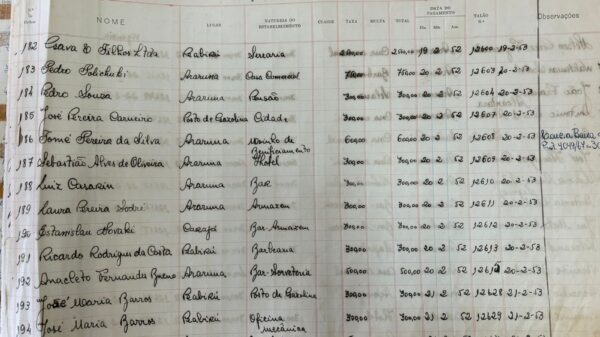 NOME LUGAR NATUREZA DO ESTABELECIMENTO CLASSE TAXA MULTA TOTAL DATA DO PAGAMENTO Dia Mês Ano TALÃO N.º Observações
182 & Filhos Ltda Peabirú Serraria 250,00 250,00 19 2 52 12600 19-2-53
183 Pedro Polichuki Araruna Casa Comercial 750,00 750,00 20 2 52 12603 20-2-53
184 Pedro Souza Araruna Pensão 300,00 300,00 20 2 52 12604 20-2-53
185 José Pereira Carneiro Pôsto de Gazolina Cidade 300,00 300,00 20 2 52 12607 20-2-53
186 Tomé Pereira da Silva Araruna Moinho de Beneficiamento 600,00 600,00 20 2 52 12608 20-2-53
187 Sebastião Alves de Oliveira Araruna Hotel 300,00 300,00 20 2 52 12609 20-2-53
188 Luiz Casarin Araruna Bar 300,00 300,00 20 2 52 12610 20-2-53
189 Laura Pereira Sodré Araruna Armazen 300,00 300,00 20 2 52 12611 20-2-53
190 Estanislau Novaki Bar-Armazen 300,00 300,00 20 2 52 12612 20-2-53
191 Ricardo Rodrigues da Costa Peabirú Barbearia 300,00 300,00 20 2 52 12613 20-2-53
192 Anacleto Fernandes Bueno Araruna Bar-Sorveteria 500,00 500,00 20 2 52 20-2-53
193 José Maria Barros Peabirú Pôsto de Gazolina 300,00 300,00 21 2 52 12628 21-2-53
194 José Maria Barros Peabirú Oficina Mecânica 300,00 300,00 21 2 52 12629 21-2-53